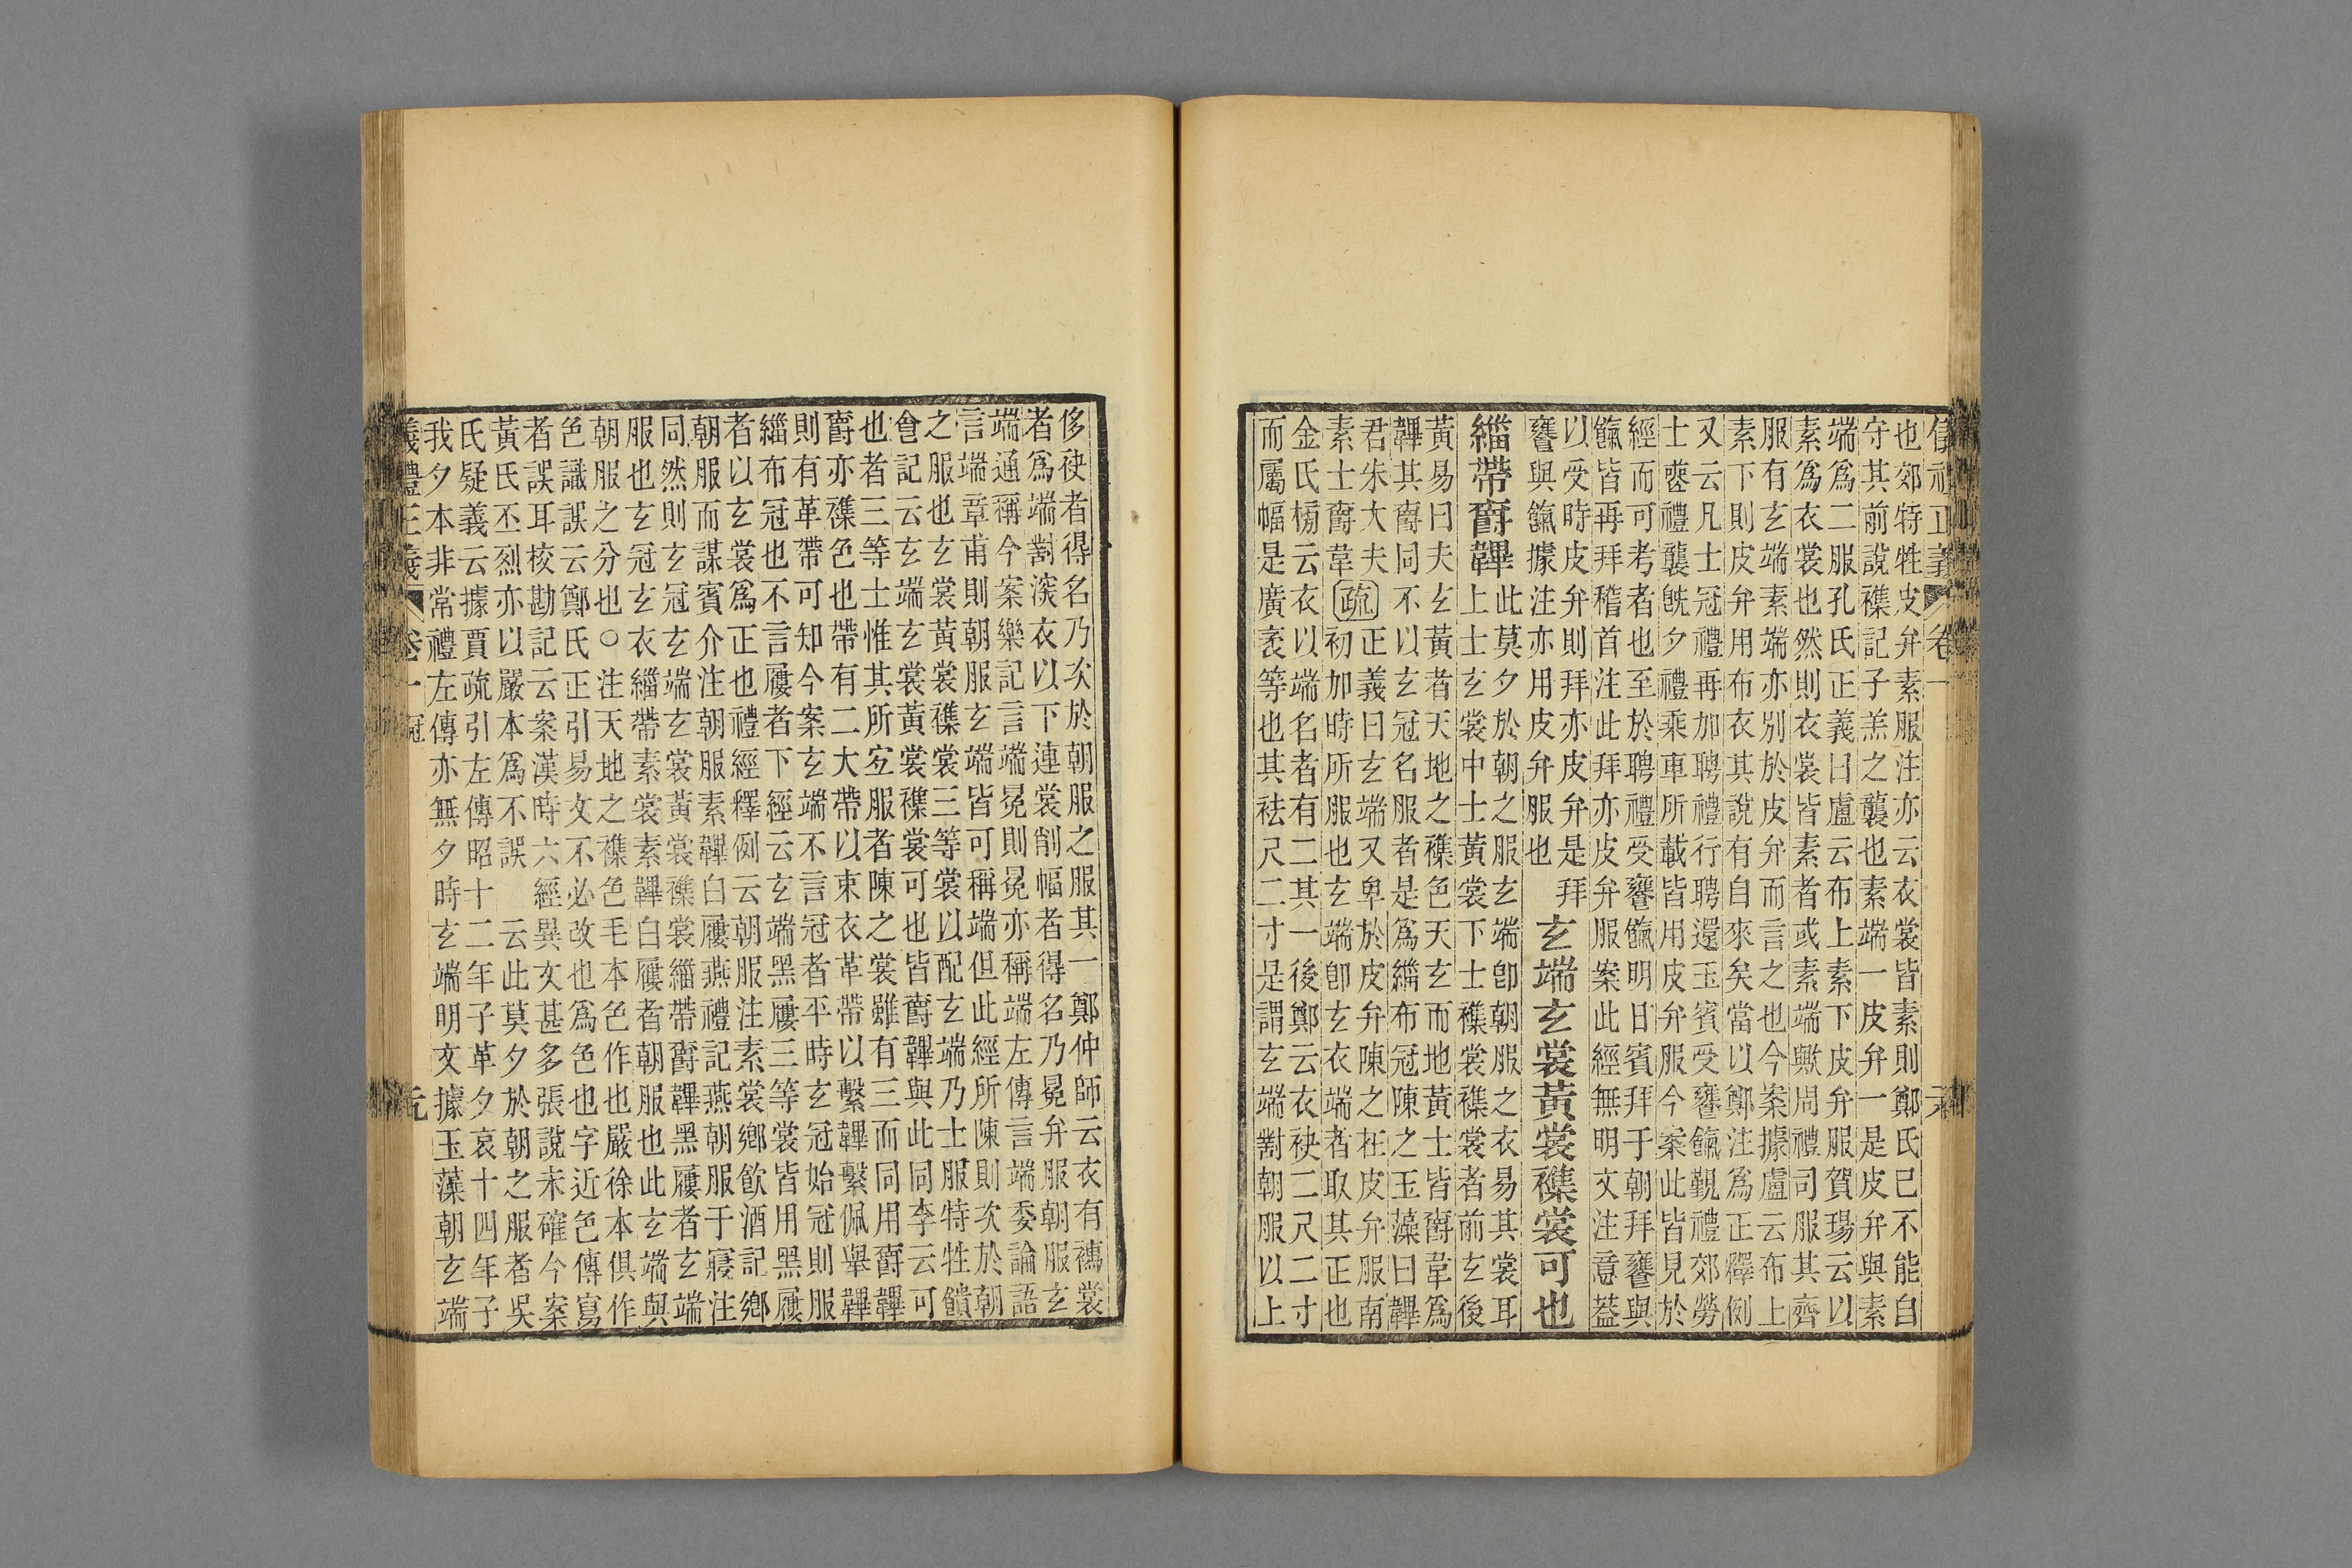 也郊特牲皮弁素服注亦云衣裳皆素則鄭氏已不能自
守其前說襍記子羔之襲也素端一皮弁一是皮弁與素
端爲二服孔氏正義曰盧云布上素下皮弁服賀瑒云以
素爲衣裳也然則衣裳皆素者或素端歟周禮司服其齊
服有玄端素端亦別於皮弁而言之也今案據盧云布上
素下則皮弁用布衣其說有自來矣當以鄭注爲正釋例
又云凡士冠禮再加聘禮行聘還玉賓受饔餼覲禮郊勞
士喪禮襲旣夕禮乘車所載皆用皮弁服今案此皆見於
經而可考者也至於聘禮受饔餼明日賓拜于朝拜饔與
餼皆再拜稽首注此拜亦皮弁服案此經無明文注意葢
以受時皮弁則拜亦皮弁是拜
饔與餼據注亦用皮弁服也
玄端玄裳黃裳襍裳可也
緇帶爵韠
此莫夕於朝之服玄端卽朝服之衣易其裳耳
上士玄裳中士黃裳下士襍裳襍裳者前玄後
黃易曰夫玄黃者天地之襍色天玄而地黃士皆爵韋爲
韠其爵同不以玄冠名服者是爲緇布冠陳之玉藻曰韠
君朱大夫
素士爵韋
疏
正義曰玄端又卑於皮弁陳之在皮弁服南
初加時所服也玄端卽玄衣端者取其正也
金氏榜云衣以端名者有二其一後鄭云衣袂二尺二寸
而屬幅是廣袤等也其袪尺二寸是謂玄端對朝服以上
侈袂者得名乃次於朝服之服其一鄭仲師云衣有襦裳
者爲端對深衣以下連裳削幅者得名乃冕弁服朝服玄
端通稱今案樂記言端冕則冕亦稱端左傳言端委論語
言端章甫則朝服玄端皆可稱端但此經所陳則次於朝
之服也玄裳黃裳襍裳三等裳以配玄端乃士服特牲饋
食記云玄端玄裳黃裳襍裳可也皆爵韠與此同李云可
也者三等士惟其所宜服者陳之裳雖有三而同用爵韠
爵亦襍色也帶有二大帶以束衣革帶以繫韠繫佩舉韠
則有革帶可知今案玄端不言冠者平時玄冠始冠則服
緇布冠也不言屨者下經云玄端黑屨三等裳皆用黑屨
者以玄裳爲正也禮經釋例云朝服注素裳鄉飮酒記鄉
朝服而謀賓介注朝服素韠白屨燕禮記燕朝服于寢注
同然則玄冠玄端玄裳黃裳襍裳緇帶爵韠黑屨者玄端
服也玄冠玄衣緇帶素裳素韠白屨者朝服也此玄端與
朝服之分也○注天地之襍色毛本色作也嚴徐本俱作
色識誤云鄭氏正引易文不必改也爲色也字近色傳寫
者誤耳校勘記云案漢時六經異文甚多張說未確今案
黃氏丕烈亦以嚴本爲不誤 云此莫夕於朝之服者吳
氏疑義云據賈疏引左傳昭十二年子革夕哀十四年子
我夕本非常禮左傳亦無夕時玄端明文據玉藻朝玄端